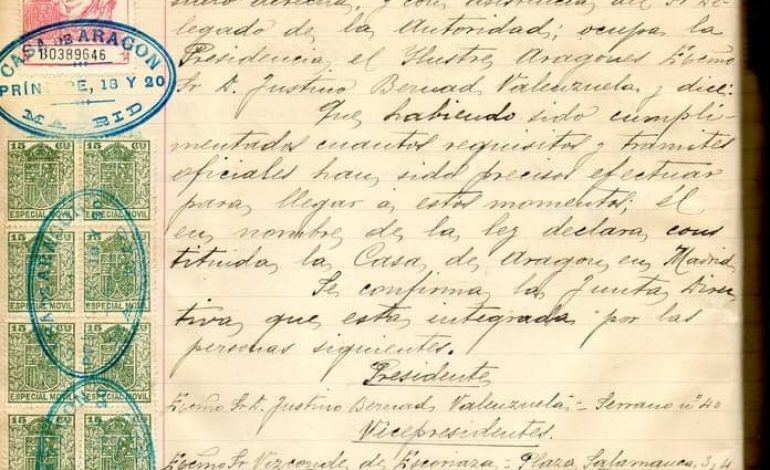 CASA DE ARAGON
B0389646
PRÍNCIPE, 18 Y 20
MADRID
15 CU 15 CU
ESPECIAL MOVIL ESPECIAL MOVIL
15 CU 15 CU
ESPECIAL MOVIL ESPECIAL MOVIL
15 CU 15 CU
ESPECIAL MOVIL ESPECIAL MOVIL
15 CU 15 CU
y con asistencia del Sr De-
legado de la Autoridad; ocupa la
Presidencia el Ilustre Aragones Excmo
Sr D. Justino Bernad Valenzuela y dice:
Que habiendo sido cumpli-
mentados cuantos requisitos y tramites
oficiales han sido precisos efectuar
para llegar a estos momentos; él
en nombre de la ley declara cons
tituida la Casa de Aragon en Madrid
Se confirma la Junta Direc
tiva que esta integrada por las
personas siguientes.
Presidente
Excmo Sr D. Justino Bernad Valenzuela = Serrano nº 40
Vicepresidentes.
Excmo Sr Vizconde de Escoriaza - Plaza Salamanca,